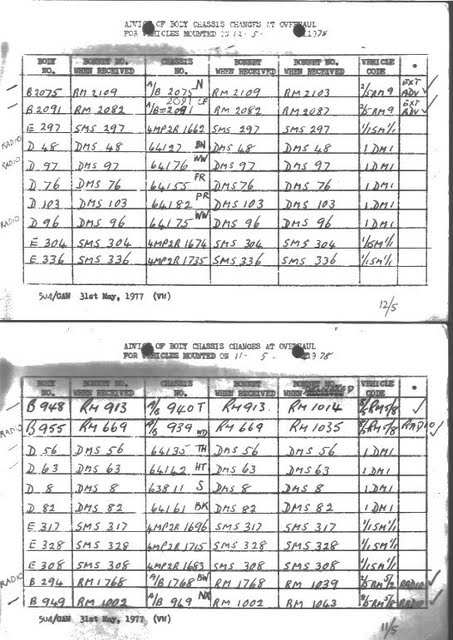 ADVICE OF BODY CHASSIS CHANGES AT OVERHAUL
FOR VEHICLES MOUNTED ON 12 - 5 - 1978
BODY NO. BONNET NO. WHEN RECEIVED CHASSIS NO. BONNET NO. WHEN RECEIVED BONNET NO. VEHICLE CODE *
B2075 RM 2109 A/B 2075 N RM 2109 RM 2103 2/5RM9 EXT ADV ✓
B2091 RM 2082 A/B 2091 CF RM 2082 RM 2087 2/5RM9 EXT ADV ✓
E 297 SMS 297 4MP2R 1662 SMS 297 SMS 297 1/1SM1/1
RADIO D 48 DMS 48 64127 BN DMS 48 DMS 48 1 DM1
RADIO D 97 DMS 97 64176 WW DMS 97 DMS 97 1 DM1
D 76 DMS 76 64155 FR DMS 76 DMS 76 1 DM1
D 103 DMS 103 64182 PR DMS 103 DMS 103 1 DM1
RADIO D 96 DMS 96 64175 WW DMS 96 DMS 96 1 DM1
E 304 SMS 304 4MP2R 1674 SMS 304 SMS 304 1/1SM1/1
E 336 SMS 336 4MP2R 1735 SMS 336 SMS 336 1/1SM1/1
504/GAW 31st May, 1977 (VW)
12/5
ADVICE OF BODY CHASSIS CHANGES AT OVERHAUL
FOR VEHICLES MOUNTED ON 11 - 5 - 1978
BODY NO. BONNET NO. WHEN RECEIVED CHASSIS NO. BONNET NO. WHEN RECEIVED BONNET NO. VEHICLE CODE *
B 948 RM 913 A/B 940 T RM 913 RM 1014 ✓
RADIO B955 RM 669 A/B 939 WD RM 669 RM 1035 RADIO ✓
D 56 DMS 56 64135 TH DMS 56 DMS 56 1 DM1
D 63 DMS 63 64142 HT DMS 63 DMS 63 1 DM1
D 8 DMS 8 63811 S DMS 8 DMS 8 1 DM1
D 82 DMS 82 64161 BK DMS 82 DMS 82 1 DM1
E 317 SMS 317 4MP2R 1696 SMS 317 SMS 317 1/1SM1/1
E 328 SMS 328 4MP2R 1715 SMS 328 SMS 328 1/1SM1/1
E 308 SMS 308 4MP2R 1683 SMS 308 SMS 308 1/1SM1/1
RADIO B 294 RM 1768 A/B 1768 BW RM 1768 RM 1039 RADIO ✓
B 949 RM 1002 A/B 949 NX RM 1002 RM 1043 RADIO ✓
504/GAW 31st May, 1977 (VW)
11/5